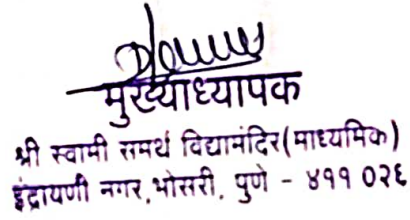 मुख्याध्यापक
श्री स्वामी समर्थ विद्यामंदिर(माध्यमिक)
इंद्रायणी नगर,भोसरी, पुणे - ४११ ०२६